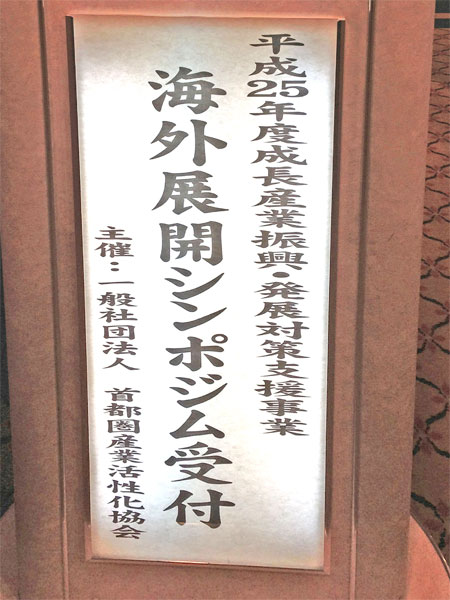 平成25年度成長産業振興・発展対策支援事業
海外展開シンポジム受付
主催：一般社団法人 首都圏産業活性化協会